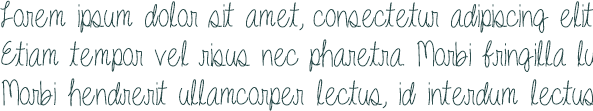 Lorem ipsum dolor sit amet, consectetur adipiscing elit
Etiam tempor vel risus nec pharetra. Morbi fringilla lu
Morbi hendrerit ullamcorper lectus, id interdum lectus